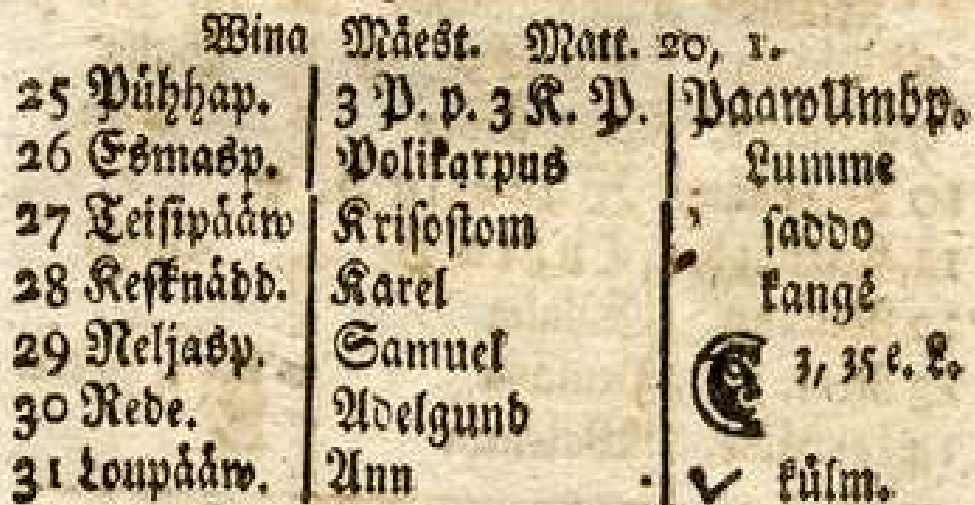 Wina Mäest. Matt. 20, 1.
25 Pühhap. 3 P. p. 3 K. P. PaawUmbp.
26 Esmasp. Polikarpus Lumme
27 Teisipääw Krisostom saddo
28 Kesknädd. Karel kange
29 Neljasp. Samuel 3, 35 e. L.
30 Rede. Adelgund
31 Loupääw. Ann külm.